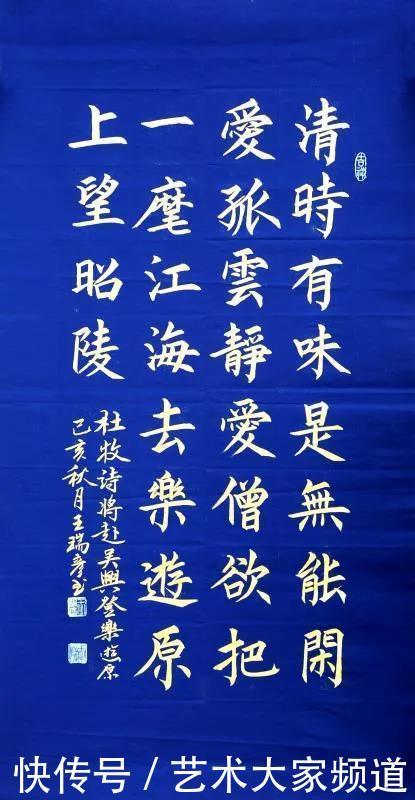 清時有味是無能閑
愛孤雲靜愛僧欲把
一麾江海去樂遊原
上望昭陵
杜牧诗將赴吴興登樂遊原
己亥秋月王瑞彦书
快传号 / 艺术大家频道